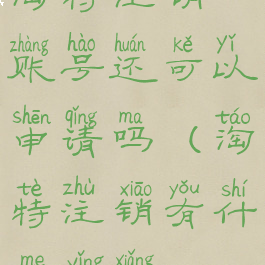 zhàng hào huán kě yǐ
账号还可以
shēn qǐng ma táo
申请吗（淘
tè zhù xiāo yǒu shí
特注销有什
me yǐng xiǎng